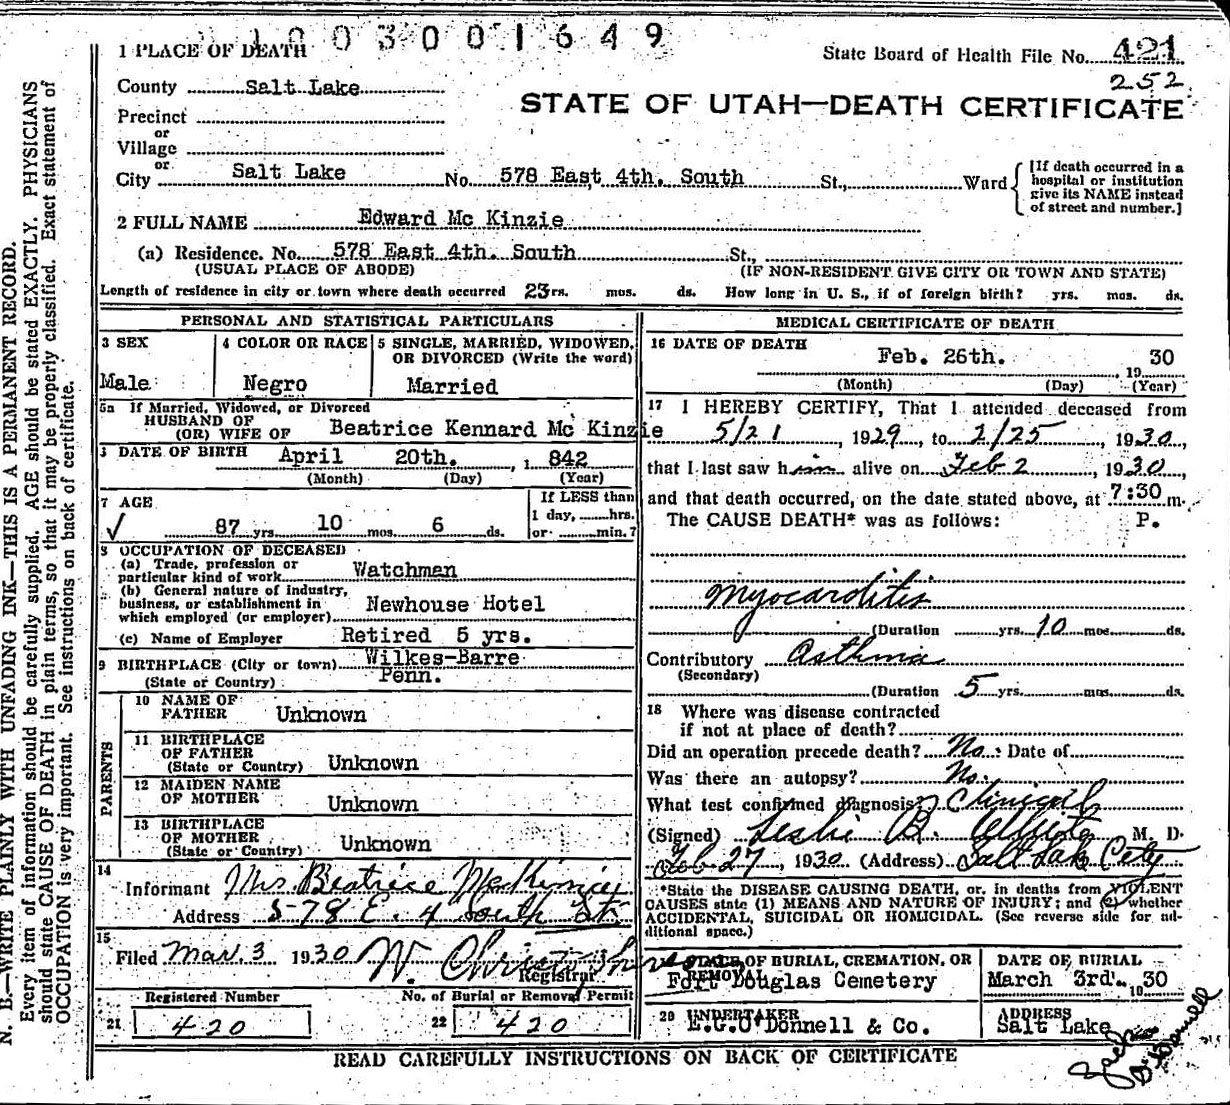 1003001649
1 PLACE OF DEATH
State Board of Health File No. 421
252
County Salt Lake
STATE OF UTAH—DEATH CERTIFICATE
Precinct
or
Village
or
City Salt Lake No. 578 East 4th. South St., Ward
[If death occurred in a
hospital or institution
give its NAME instead
of street and number.]
2 FULL NAME Edward Mc Kinzie
(a) Residence. No. 578 East 4th. South St.,
(USUAL PLACE OF ABODE) (IF NON-RESIDENT GIVE CITY OR TOWN AND STATE)
Length of residence in city or town where death occurred 23rs. mos. ds. How long in U. S., if of foreign birth? yrs. mos. ds.
PERSONAL AND STATISTICAL PARTICULARS
3 SEX
Male
4 COLOR OR RACE
Negro
5 SINGLE, MARRIED, WIDOWED,
OR DIVORCED (Write the word)
Married
5a If Married, Widowed, or Divorced
HUSBAND OF
(OR) WIFE OF Beatrice Kennard Mc Kinzie
DATE OF BIRTH April 20th. , 1 842
(Month) (Day) (Year)
7 AGE
87 yrs. 10 mos. 6 ds.
If LESS than
1 day, hrs.
or min.?
8 OCCUPATION OF DECEASED
(a) Trade, profession or
particular kind of work Watchman
(b) General nature of industry,
business, or establishment in
which employed (or employer) Newhouse Hotel
(c) Name of Employer Retired 5 yrs.
9 BIRTHPLACE (City or town) Wilkes-Barre
(State or Country) Penn.
PARENTS
10 NAME OF
FATHER Unknown
11 BIRTHPLACE
OF FATHER
(State or Country) Unknown
12 MAIDEN NAME
OF MOTHER Unknown
13 BIRTHPLACE
OF MOTHER
(State or Country) Unknown
14
Informant Mrs. Beatrice McKinzie
Address 578 E. 4 South St.
15
Filed Mar. 3 1930
Registrar
Registered Number
21 420
No. of Burial or Removal Permit
22 420
MEDICAL CERTIFICATE OF DEATH
16 DATE OF DEATH
Feb. 26th. , 19 30
(Month) (Day) (Year)
17 I HEREBY CERTIFY, That I attended deceased from
5/21 , 1929, to 2/25 , 1930,
that I last saw him alive on Feb 2 , 1930,
and that death occurred, on the date stated above, at 7:30 m.
The CAUSE DEATH* was as follows: P.
Myocarditis
(Duration yrs. 10 mos. ds.
Contributory Asthma
(Secondary)
(Duration 5 yrs. mos. ds.
18 Where was disease contracted
if not at place of death?
Did an operation precede death? No. Date of
Was there an autopsy? No.
What test confirmed diagnosis? Clinical
(Signed) Leslie B. M. D.
Feb 27, 1930 (Address) Salt Lake City
*State the DISEASE CAUSING DEATH, or, in deaths from VIOLENT
CAUSES state (1) MEANS AND NATURE OF INJURY; and (2) whether
ACCIDENTAL, SUICIDAL OR HOMICIDAL. (See reverse side for ad-
ditional space.)
PLACE OF BURIAL, CREMATION, OR
REMOVAL
Fort Douglas Cemetery
DATE OF BURIAL
March 3rd. 1930
20 UNDERTAKER
E.G.O'Donnell & Co.
ADDRESS
Salt Lake
O'Donnell
READ CAREFULLY INSTRUCTIONS ON BACK OF CERTIFICATE
N. B.—WRITE PLAINLY WITH UNFADING INK—THIS IS A PERMANENT RECORD.
Every item of information should be carefully supplied. AGE should be stated EXACTLY. PHYSICIANS
should state CAUSE OF DEATH in plain terms, so that it may be properly classified. Exact statement of
OCCUPATION is very important. See instructions on back of certificate.